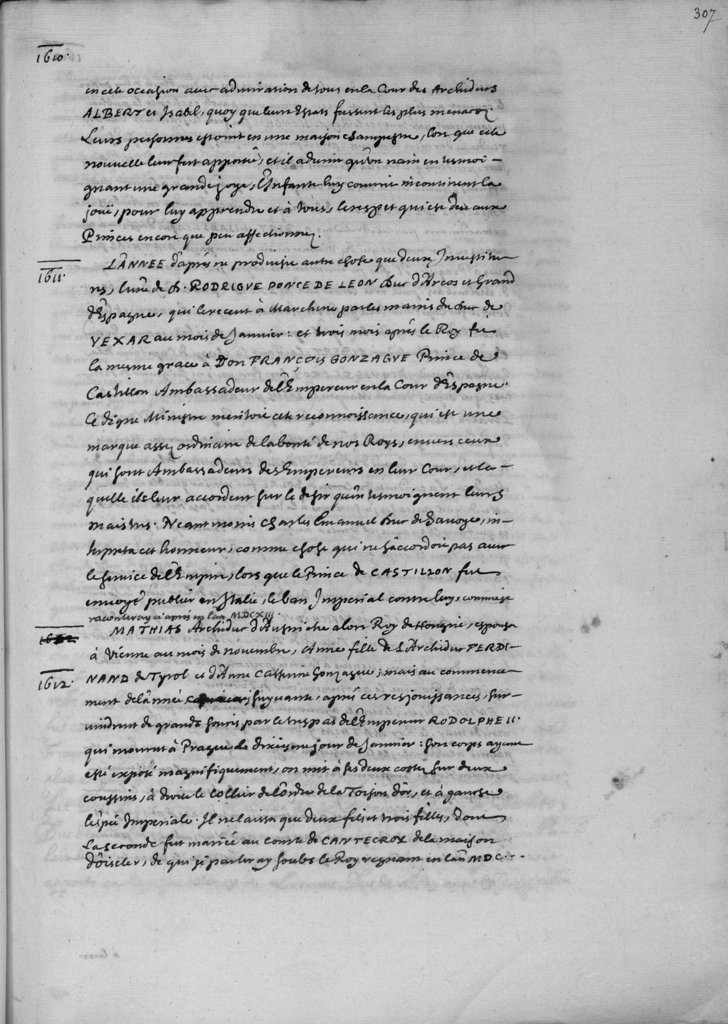 307
1610.
en cete occasion avec admiration de tous en la Cour des Archiducs
ALBERT et Isabel, quoy que leurs Estats fussent les plus menacez
Leurs personnes estoient en une maison champestre, lors que cete
nouvelle leur fut apportée, et il advint qu'un nain en tesmoi-
gnant une grande joye, l'Infante luy couvrit incontinent la
joüe, pour luy apprendre et à tous, le respect qui est deu aux
Princes encor que peu affectionnez.
1611.
L'ANNEE d'après ne produisit autre chose que deux Investitu-
res, l'une de D. RODRIGVE PONCE DE LEON Duc d'Arcos et Grand
d'Espagne, qui le receut à Marchena par les mains du Duc de
VEXAR au mois de Janvier: et trois mois après le Roy fit
la mesme grace à Don FRANÇOIS GONZAGVE Prince de
Castillon Ambassadeur de l'Empereur en la Cour d'Espagne.
Ce digne Ministre meritoit cete reconnoissance, qui est une
marque assez ordinaire de la bonté de nos Roys, envers ceux
qui sont Ambassadeurs des Empereurs en leur Cour, et la-
quelle ils leur accordent sur le desir qu'en tesmoignent leurs
maistres. Neantmoins Charles Emanuel Duc de Savoye, in-
terpreta cet honneur, comme chose qui ne s'accordoit pas avec
le service de l'Empire, lors que le Prince de CASTILLON fut
envoyé publier en Italie, le ban Imperial contre luy, comme je
raconteray ci après en l'an MDCXIII.
1612.
MATHIAS Archiduc d'Austriche alors Roy de Hongrie, espousa
à Vienne au mois de novembre, Anne fille de l'Archiduc FERDI-
1612.
NAND de Tyrol et d'Anne Catherine Gonzague; mais au commence-
ment de l'année suyvante, après ces resjouissances, sur-
vindrent de grands soucis par le trespas de l'Empereur RODOLPHE II.
qui mourut à Prague le dixiesme jour de Janvier: son corps ayant
esté exposé magnifiquement, on mit à ses deux costez sur deux
coussins, à droite le Collier de l'Ordre de la Toison d'or, et à gauche
l'espée Imperiale. Il ne laissa que deux fils et trois filles, dont
La seconde fut mariée au Comte de CANTECROY de la maison
d'Oiseler, de qui je parleray soubs le Roy regnant en l'an MDC...